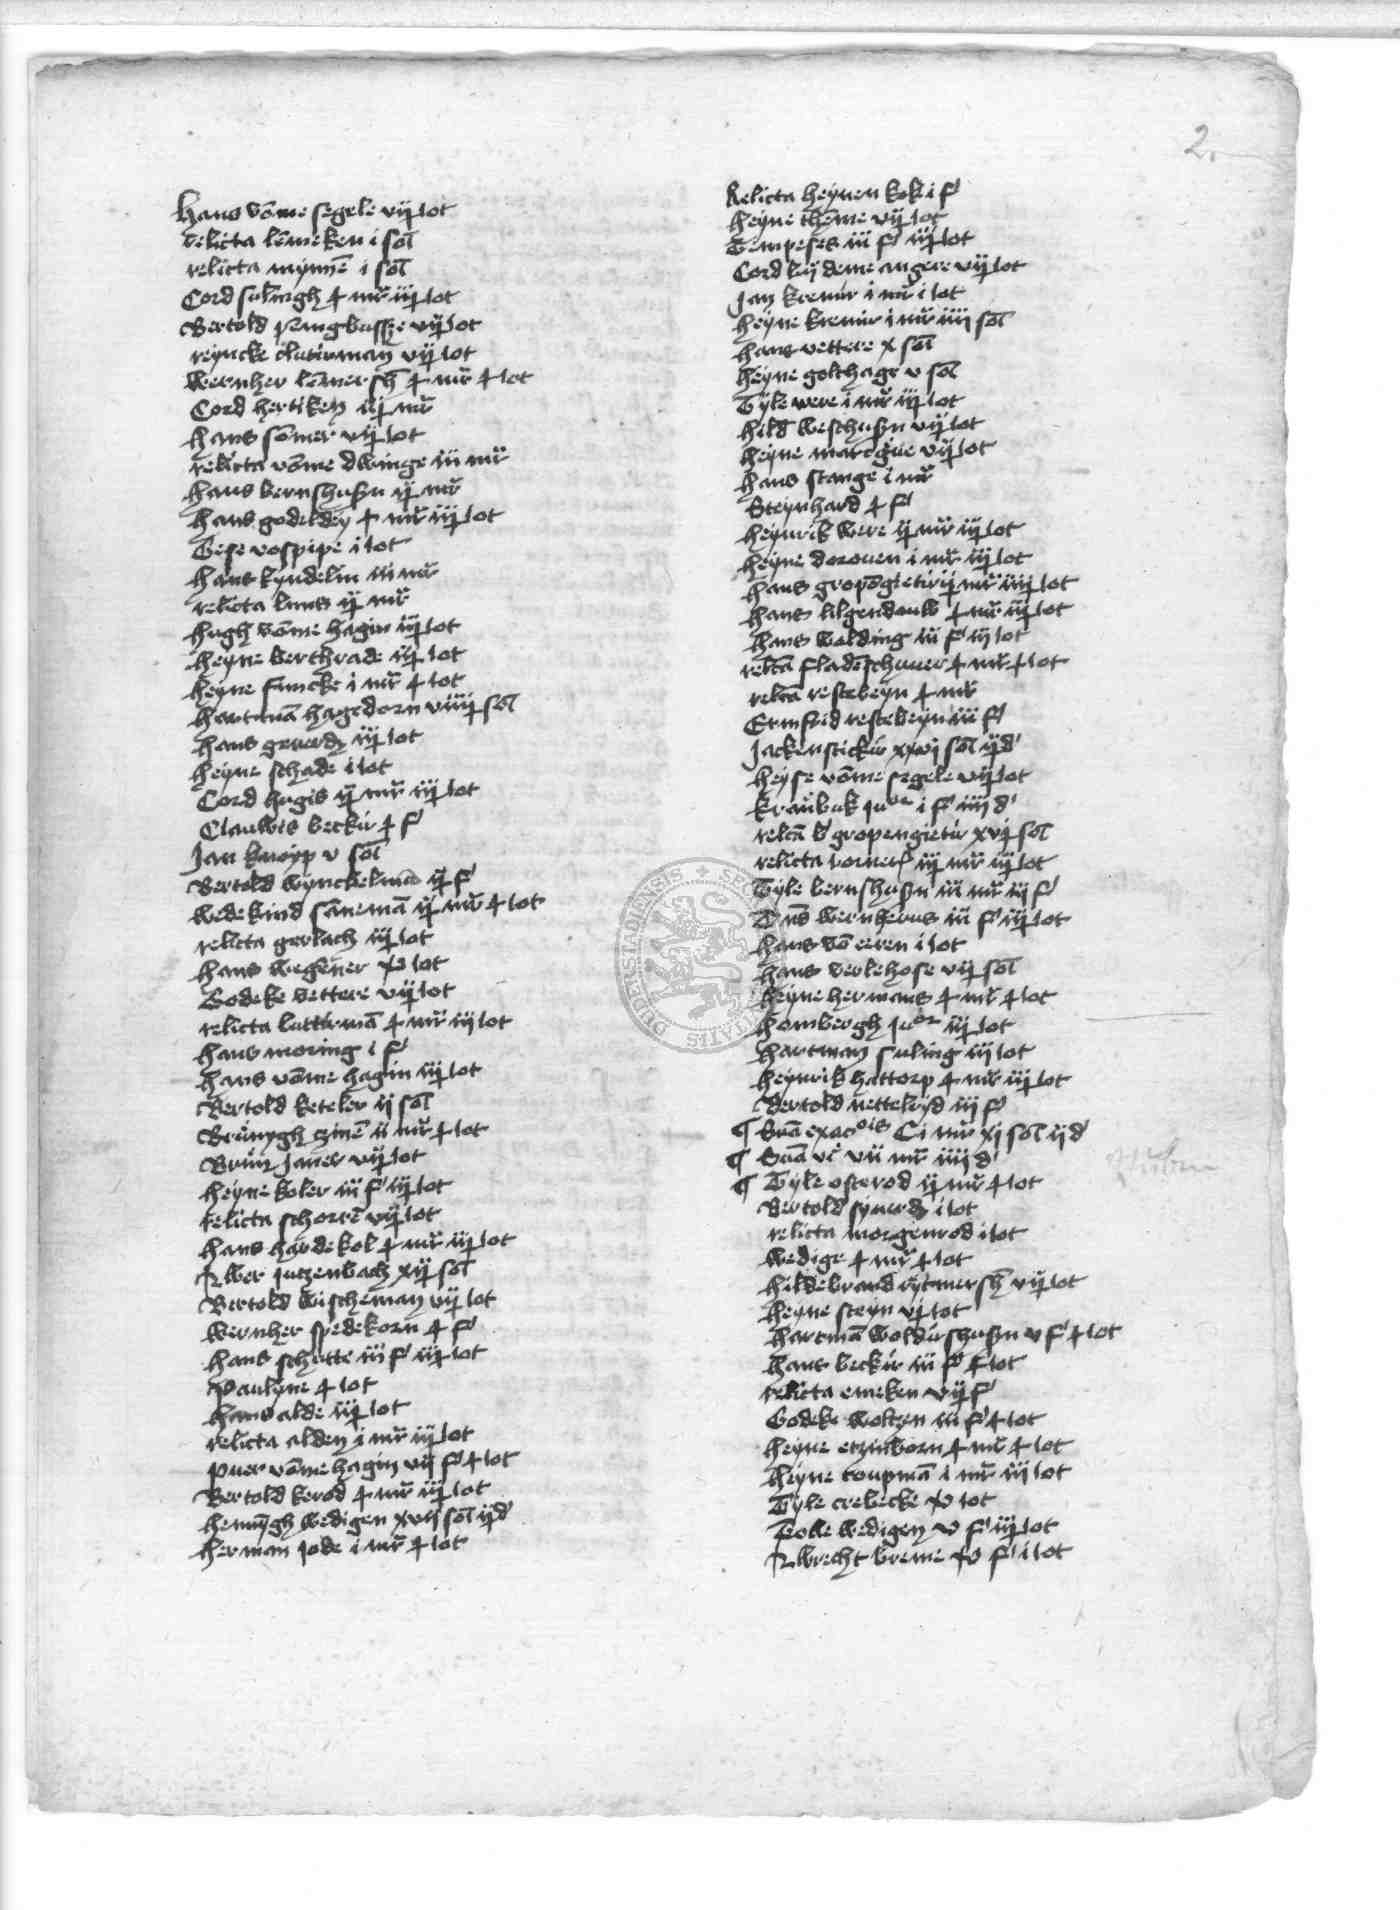 2.
Hans vōme segele vij lot
relicta lēmeken i sol
relicta mynnē i sol
Cord sulingh mr iij lot
Bertold prangbussze vij lot
reyncke cluturman vij lot
Wernher lēmersh mr lot
Cord hertiken ij mr
hans sōmer vij lot
relicta vōme dwinge iii mr
hans bernshusn ij mr
hans godeldey mr iij lot
Gese vospipe i lot
hans kyndelin iii mr
relicta luns ij mr
hugh vōme hagin iij lot
heyne berthrade iij lot
heyne funcke i mr lot
hartmā hagedorn viiij sol
hans geuerd iij lot
heyne schade i lot
Cord hugis ij mr iij lot
Clauwes beckir f
Jan knoyp v sol
Bertold wynckelmā ij f
wedekind sānemā ij mr lot
relicta gerlach iij lot
hans wegener lot
Godeke vettere vij lot
relicta luttirmā mr iij lot
hans moring i f
hans vōme hagin iij lot
Bertold keteler ij sol
Brunygh zmē ii mr lot
Brun Janer vij lot
heyne koler iii f iij lot
relicta schorrē vij lot
hans hardekol mr iij lot
Alber Jutzenbach xij sol
Bertold wischeman vij lot
wernher spedekorn f
hans schutte iii f iij lot
Paulyne lot
hans alde iij lot
relicta alden i mr iij lot
puer vōme hagin vij f lot
Bertold kerod mr iij lot
hennygh wedigen xvij sol ij d
herman Jode i mr lot
Relicta heynen kok i f
heyne thēme vij lot
Tempeses iii f iij lot
Cord bij deme angere vij lot
Jan kremir i mr i lot
heyne kremir i mr iiij sol
hans vettere x sol
heyne golthage v sol
Tyle were i mr iij lot
hild weschusn vij lot
heyne marcgue vij lot
hans stange i mr
Steynhard f
heynrik were ij mr iij lot
heyne dorouen i mr iij lot
hans gropōgietir ij mr iiij lot
hans lilgendouw mr iij lot
hans wolding iii f iij lot
relcā fladēschuuer mr lot
relcā restebeyn mr
Ermfrid restebeyn iii f
Jackenstickir xxvij sol ij d
heyse vōme segele vij lot
krawbuk Ju i f iiij d
relcā b gropengietir xvj sol
relicta borner iij mr iij lot
Tyle bernshusn iii mr iij f
Dns wernherus iii f iij lot
hans vō eeren i lot
hans verlehose vij sol
heyne hermans mr lot
hombergh Juor iij lot
hartman suling iij lot
heynrik hattorp mr iij lot
Bertold nettelryd iij f
¶ Sūā exaccois Ci mr xj sol ij d
¶ Sūā vc vii mr iiij d
¶ Tyle osterod ij mr lot
Bertold syuerd i lot
relicta morgenrod i lot
wedige mr lot
hildebrand rytmersh vij lot
heyne steyn vj lot
hartmā woldirshusn v f lot
hans beckir iii f lot
relicta emeken vij f
Godeke woltzen iii f lot
heyne etzinborn mr lot
heyne coupmā i mr iij lot
Tyle crebecke lot
Tolle wedigen v f iij lot
Albrecht breme f i lot